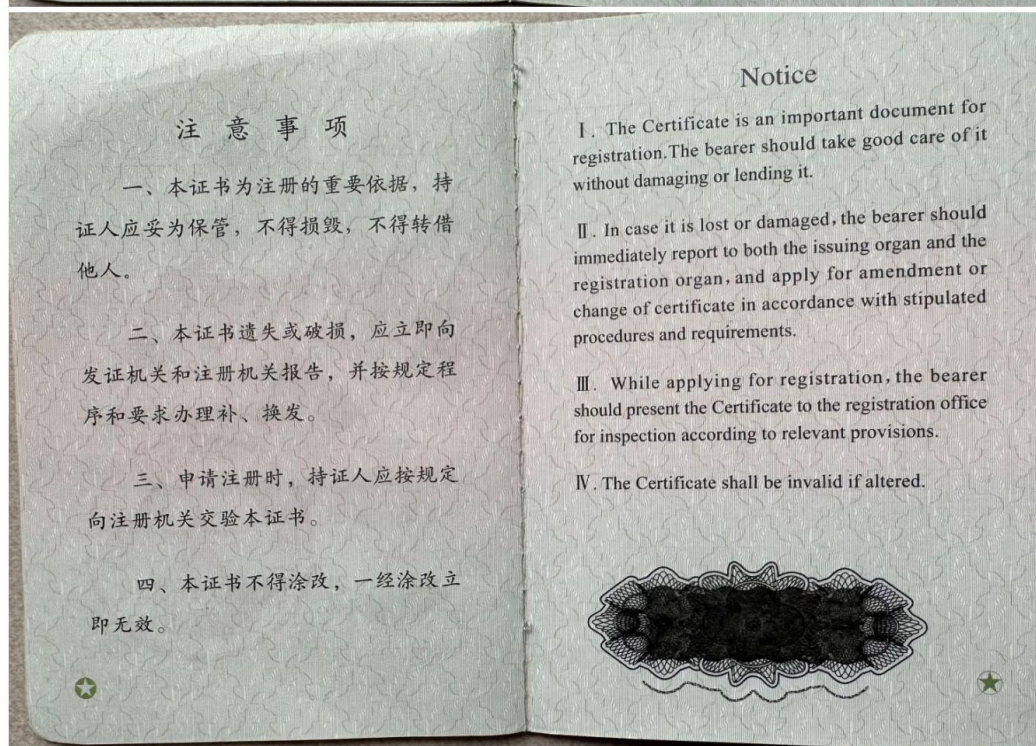 注意事项
一、本证书为注册的重要依据，持
证人应妥为保管，不得损毁，不得转借
他人。
二、本证书遗失或破损，应立即向
发证机关和注册机关报告，并按规定程
序和要求办理补、换发。
三、申请注册时，持证人应按规定
向注册机关交验本证书。
四、本证书不得涂改，一经涂改立
即无效。
Notice
Ⅰ. The Certificate is an important document for
registration.The bearer should take good care of it
without damaging or lending it.
Ⅱ. In case it is lost or damaged, the bearer should
immediately report to both the issuing organ and the
registration organ, and apply for amendment or
change of certificate in accordance with stipulated
procedures and requirements.
Ⅲ. While applying for registration, the bearer
should present the Certificate to the registration office
for inspection according to relevant provisions.
Ⅳ. The Certificate shall be invalid if altered.